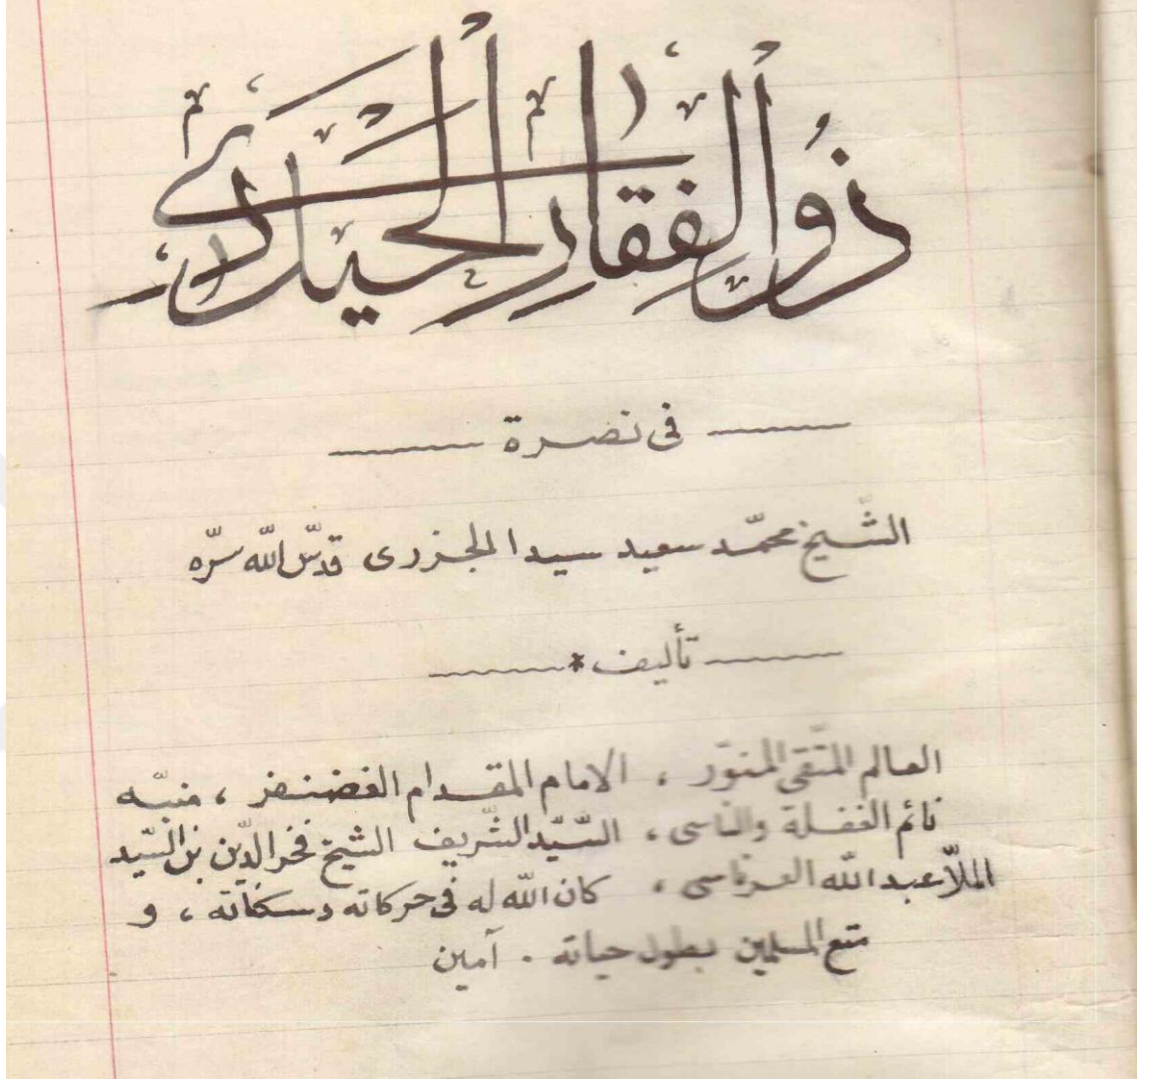 ذُو الفقار الحيدري
فى نصرة
الشّيخ محمّد سعيد سيدا الجزرى قدّس اللّه سرّه
تأليف *
العالم المتّقى المنوّر ، الامام المقدام الغضنفر ، منبّه
نائم الغفلة والناسى ، السّيّد الشّريف الشيخ فخر الدّين بن السّيد
الملّا عبد اللّه العرناسى ، كان اللّه له فى حركاته وسكناته ، و
متع المسلمين بطول حياته . آمين